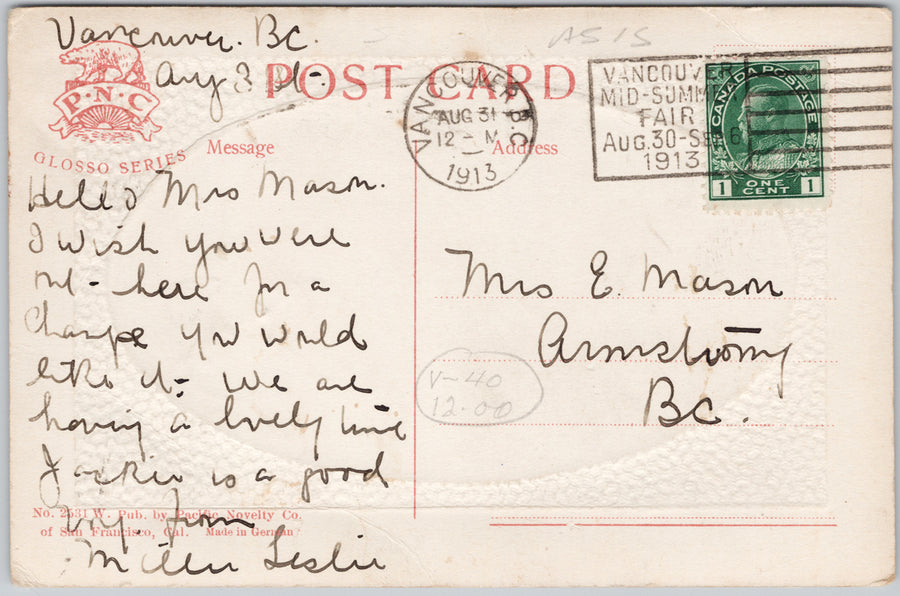 Vancouver. BC.
Aug 31st-
AS IS
POST CARD
P·N·C
GLOSSO SERIES
Message
Address
VANCOUVER B.C.
AUG 31
12 - M
1913
VANCOUVER
MID-SUMM
FAIR
AUG.30-SEP.6
1913
CANADA POSTAGE
1 ONE CENT 1
Hello Mrs Mason.
I wish you were
here for a
change you would
like it- we are
having a lovely time
Jackie is a good
boy. from
Leslie
Mrs E. Mason
Armstrong
BC.
V-40
12.00
No. 2531 W. Pub. by Pacific Novelty Co.
of San Francisco, Cal. Made in German